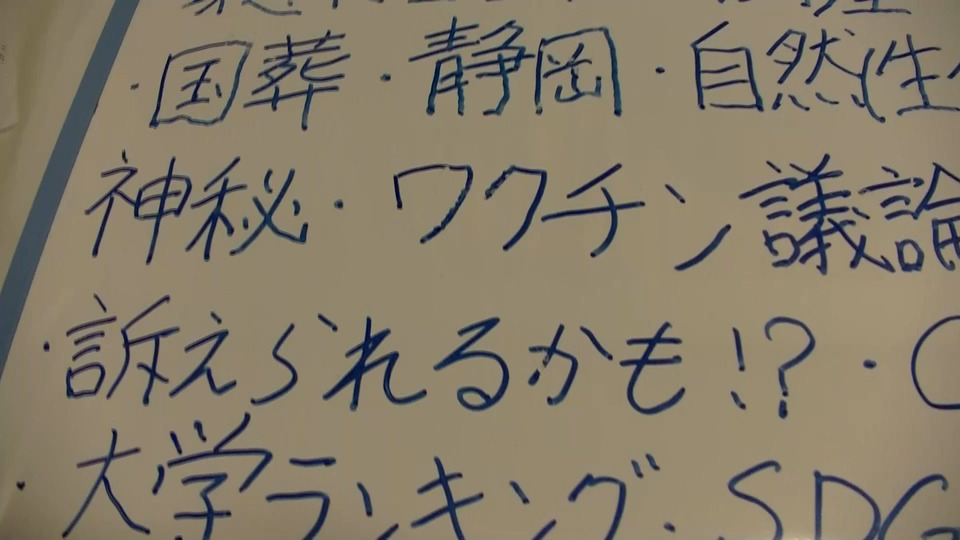 ・国葬・静岡・自然(生
神秘・ワクチン議論
・訴えられるかも!?・
・大学ランキング・SDG